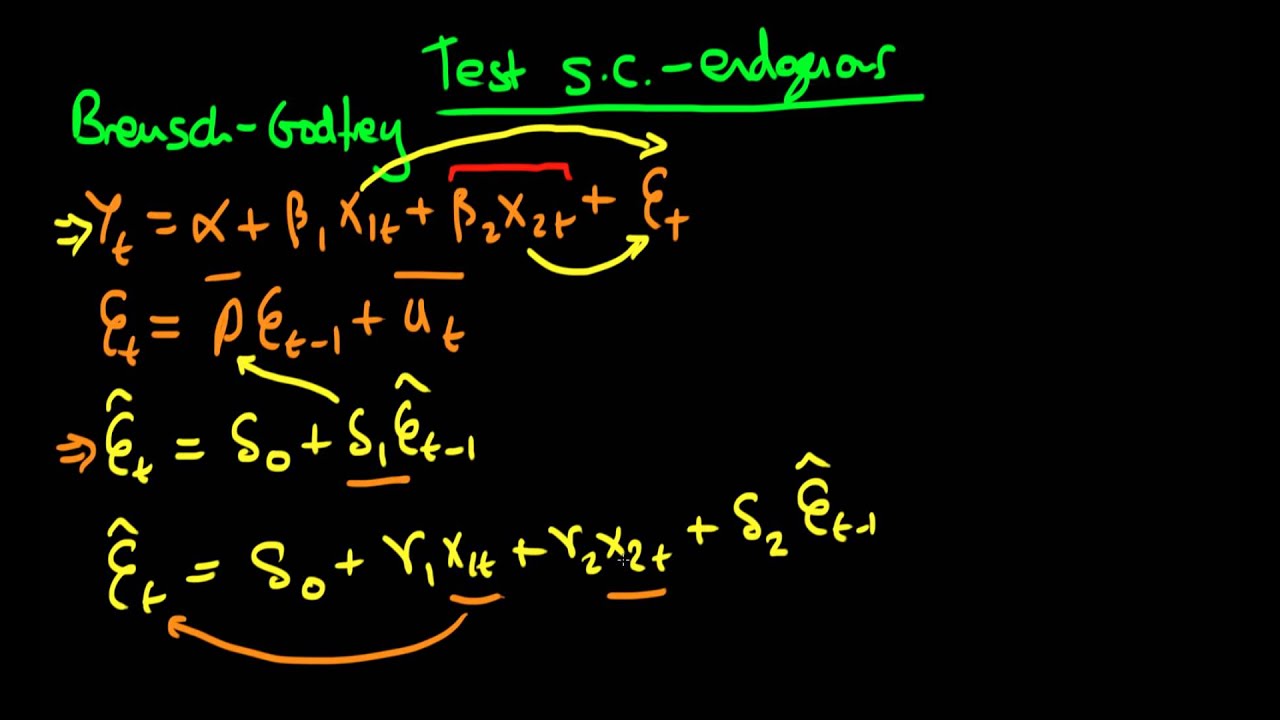 Test s.c. - endogenous
Breusch-Godfrey
⇒ Yₜ = α + β₁ x₁ₜ + β₂ x₂ₜ + εₜ
εₜ = ρ εₜ₋₁ + uₜ
⇒ ε̂ₜ = δ₀ + δ₁ ε̂ₜ₋₁
ε̂ₜ = δ₀ + γ₁ x₁ₜ + γ₂ x₂ₜ + δ₂ ε̂ₜ₋₁